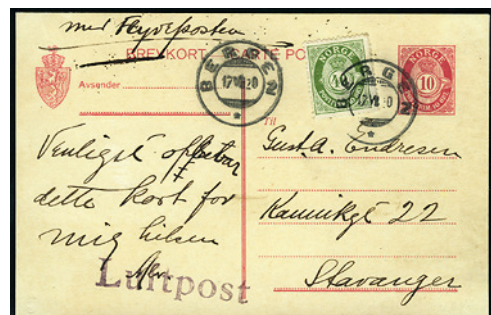 med Flyveposten
BREVKORT. CARTE PO
Avsender
BERGEN
17 VII 20
NORGE
BERGEN
17 VII 20
NORGE
10
Til
Venligst opbevar
dette kort for
mig hilsen
Luftpost
Gust. A. Endresen
Kannikgt 22
Stavanger